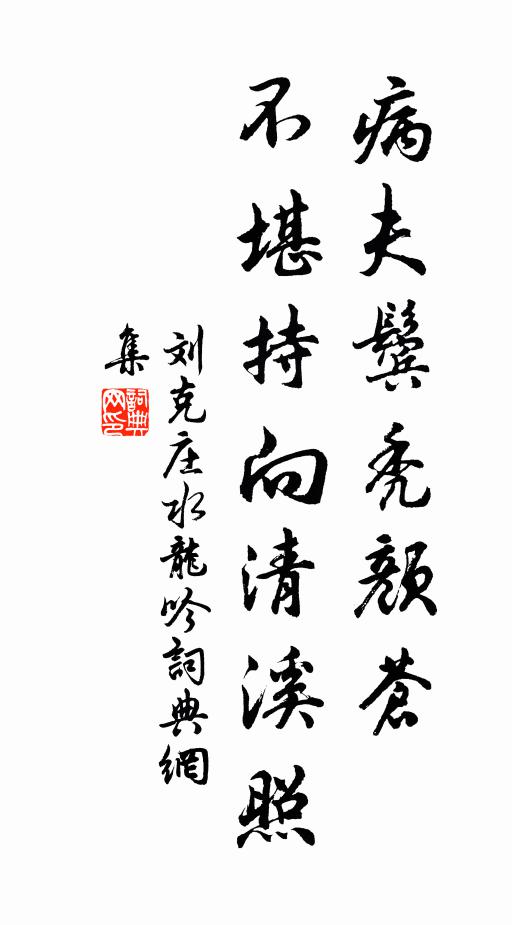 病夫鬓秃颜苍
不堪持向清溪照
刘克庄水龍吟詞典網
集
詞典网印